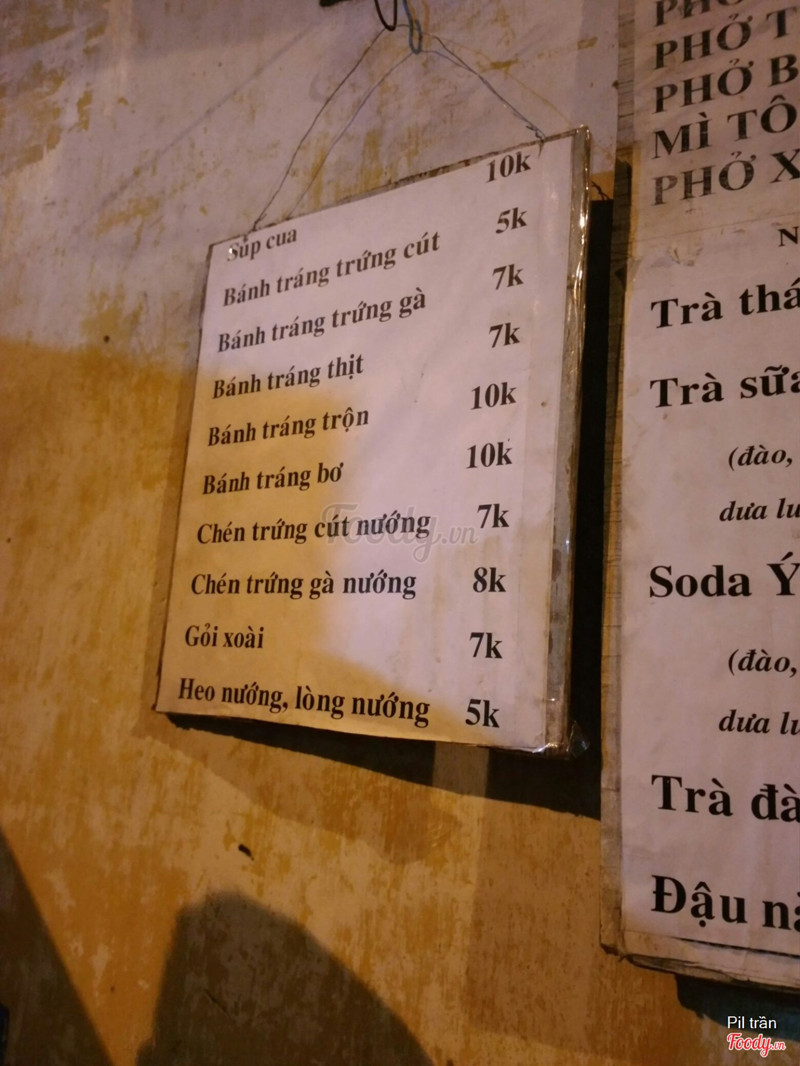 Súp cua 10k
Bánh tráng trứng cút 5k
Bánh tráng trứng gà 7k
Bánh tráng thịt 7k
Bánh tráng trộn 10k
Bánh tráng bơ 10k
Chén trứng cút nướng 7k
Chén trứng gà nướng 8k
Gỏi xoài 7k
Heo nướng, lòng nướng 5k
PHỞ T
PHỞ B
MÌ TÔ
PHỞ X
N
Trà thá
Trà sữa
(đào,
dưa lư
Soda Ý
(đào,
dưa lư
Trà đà
Đậu nà
Foody.vn
Pil trần
Foody.vn